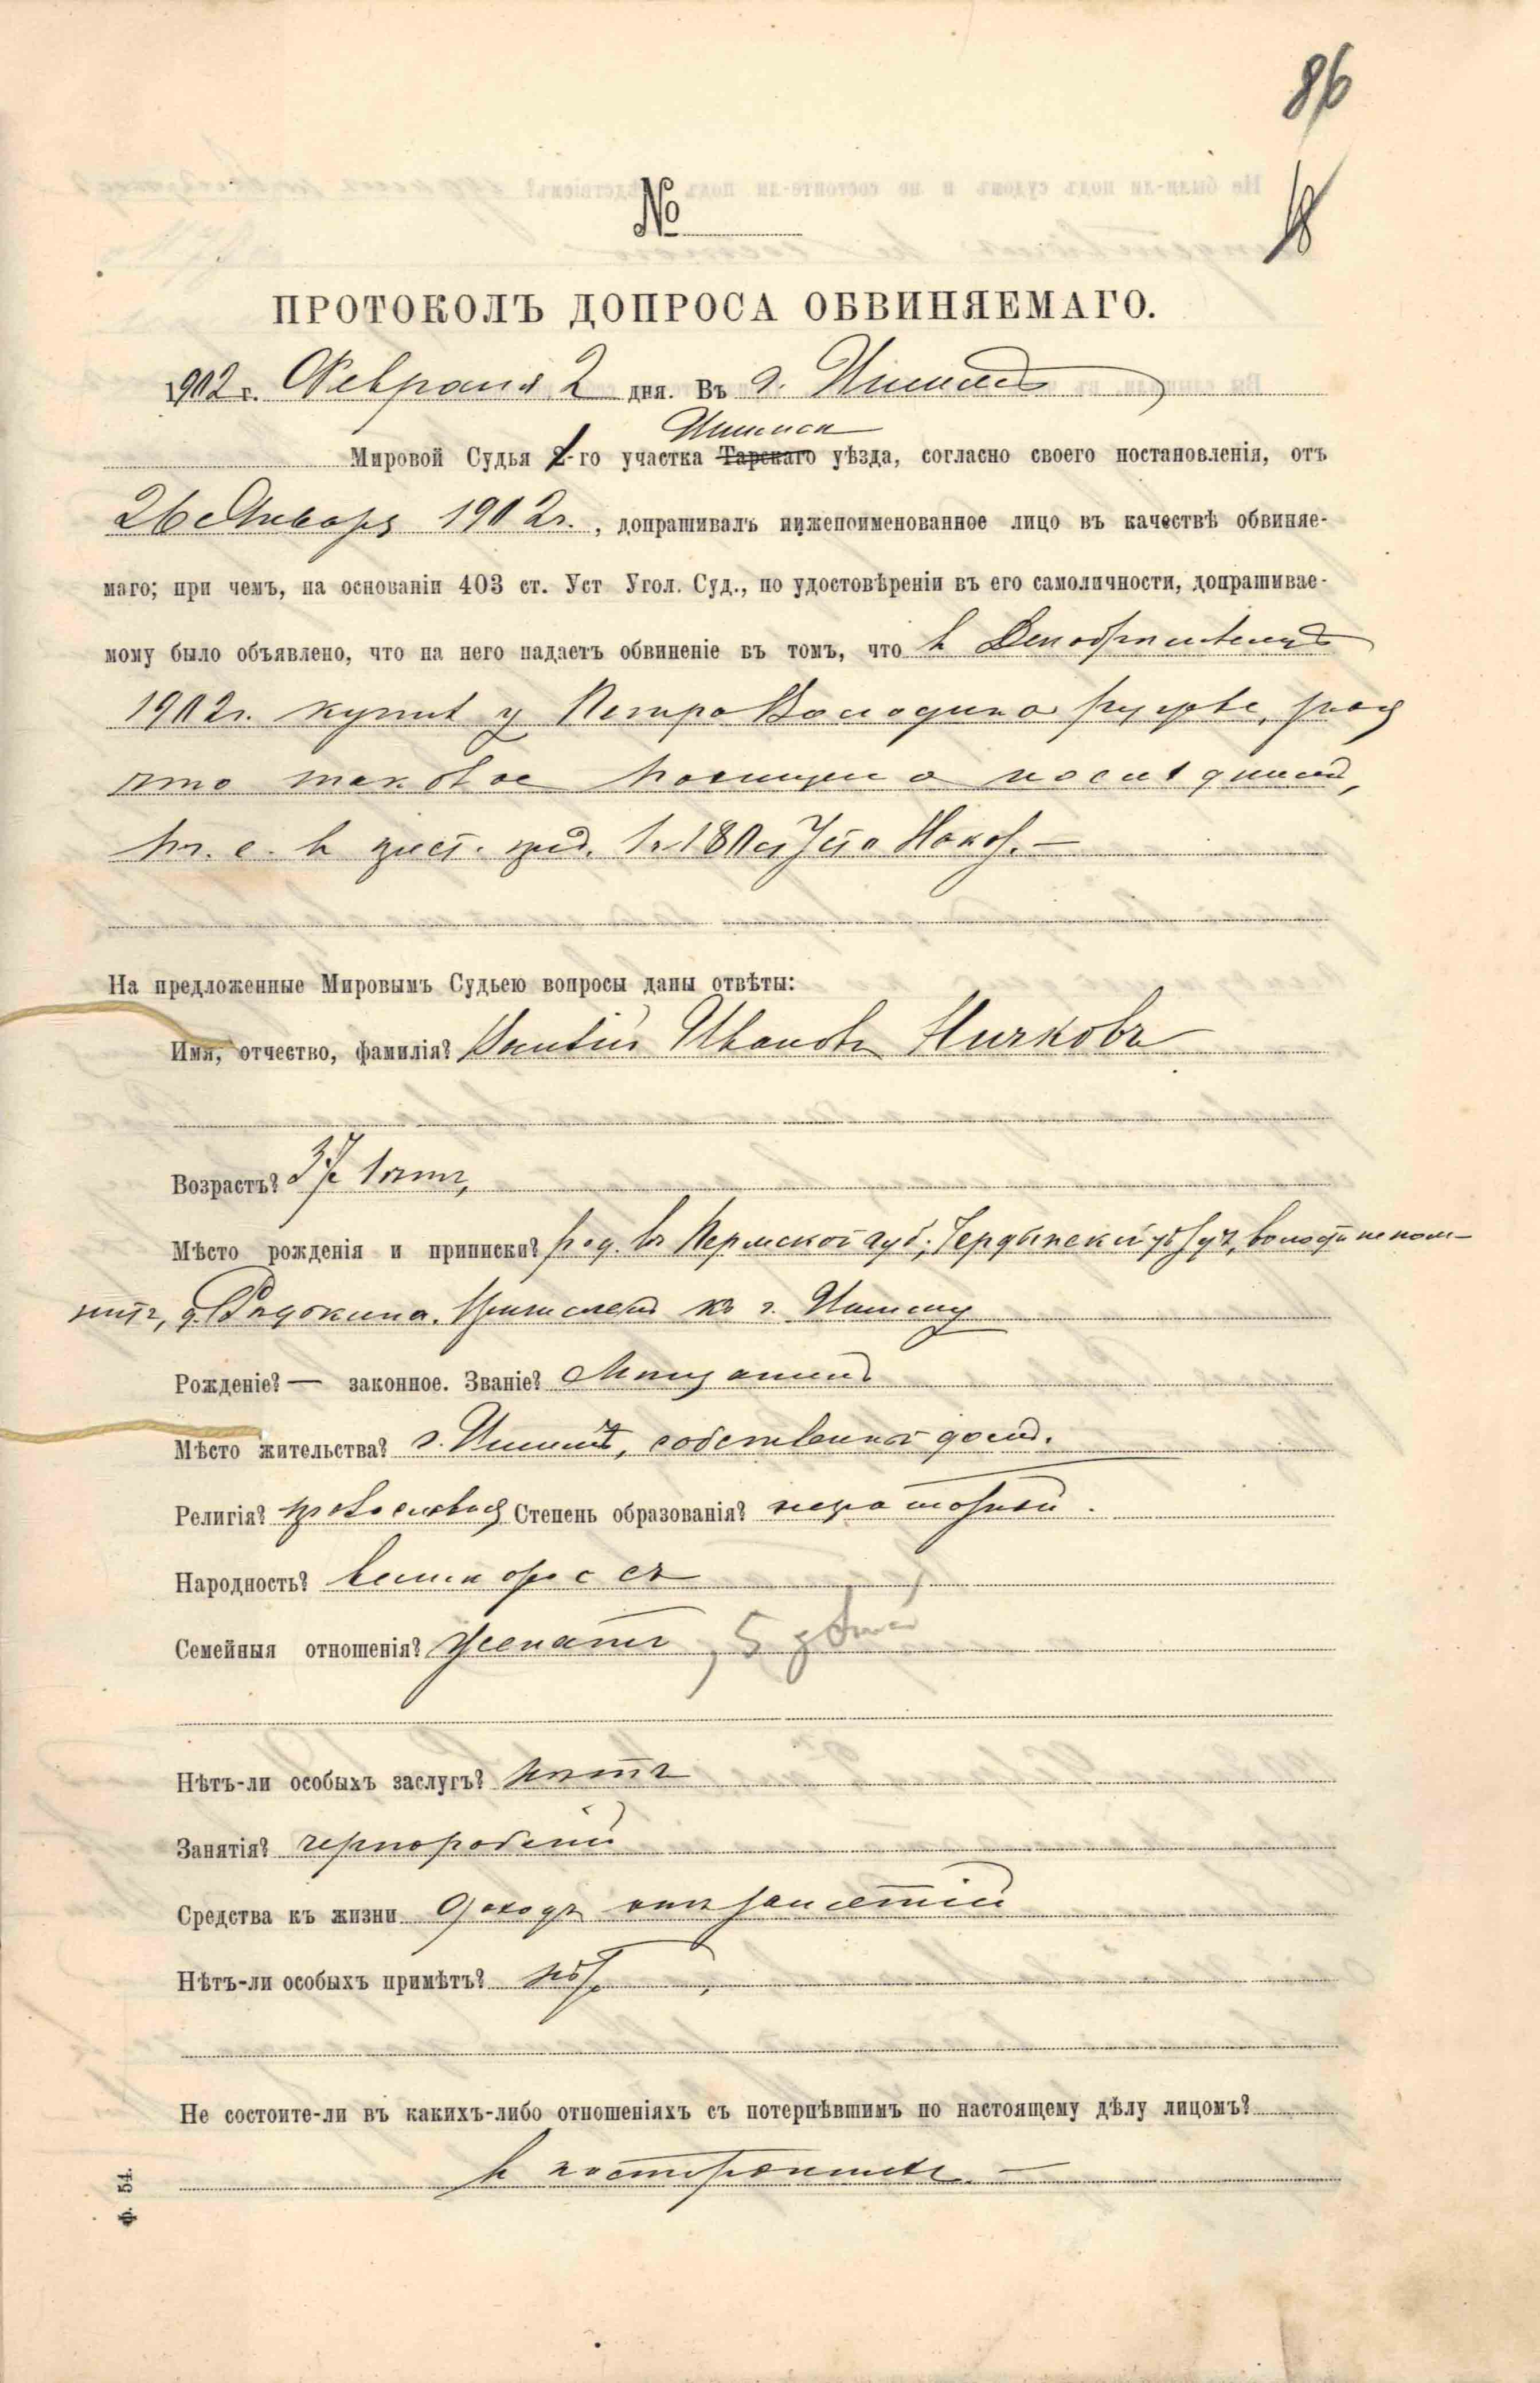 86
№
ПРОТОКОЛЪ ДОПРОСА ОБВИНЯЕМАГО.
1902 г. Февраля 2 дня. Въ г. Ишимѣ
Ишимск
Мировой Судья 1-го участка Тарскаго уѣзда, согласно своего постановленія, отъ
26 Января 1902 г., допрашивалъ нижепоименованное лицо въ качествѣ обвиняе-
маго; при чемъ, на основаніи 403 ст. Уст Угол. Суд., по удостовѣреніи въ его самоличности, допрашивае-
мому было объявлено, что на него падаетъ обвиненіе въ томъ, что в
1902 г. купилъ у Петра Володина зная
что таковое похищено послѣднимъ,
т. е. в 180 ст Уст о Наказ. —
На предложенные Мировымъ Судьею вопросы даны отвѣты:
Имя, отчество, фамилія? Ивановъ Ничковъ
Возрастъ? 37 лѣтъ,
Мѣсто рожденія и приписки? род. въ Пермской губ., Чердынскій уѣздъ, волости не пом-
нитъ, д. Причисленъ къ г. Ишиму
Рожденіе? — законное. Званіе? Мѣщанинъ
Мѣсто жительства? г. Ишимъ, собственный домъ.
Религія? православная Степень образованія? неграмотный.
Народность? великороссъ
Семейныя отношенія? женатъ, 5 дѣтей
Нѣтъ-ли особыхъ заслугъ? нѣтъ
Занятія? чернорабочій
Средства къ жизни доходъ отъ занятій
Нѣтъ-ли особыхъ примѣтъ? нѣтъ
Не состоите-ли въ какихъ-либо отношеніяхъ съ потерпѣвшимъ по настоящему дѣлу лицомъ?
в постороннихъ —
Ф. 54.